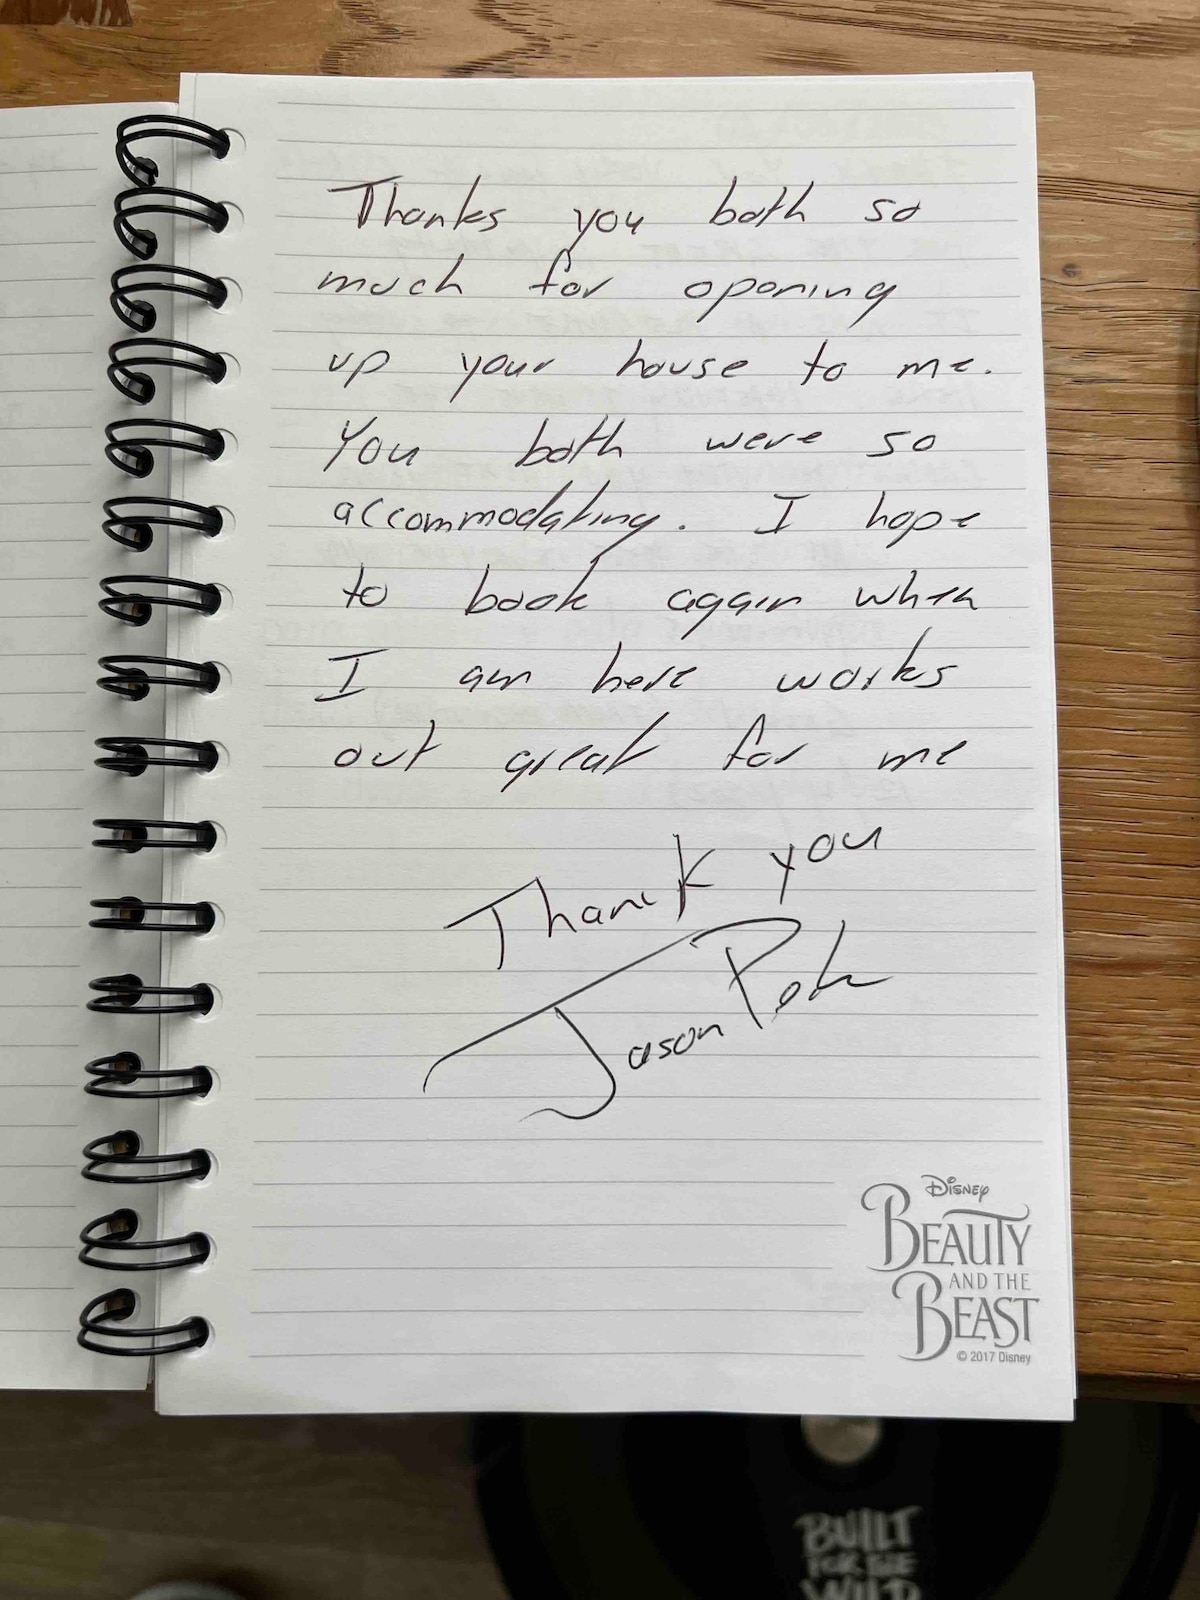 Thanks you both so
much for oponing
up your house to me.
You both were so
accommodating. I hope
to book again when
I am here works
out great for me
Thank you
Jason
Disney
BEAUTY
AND THE
BEAST
© 2017 Disney
BUILT
FOR THE
WILD